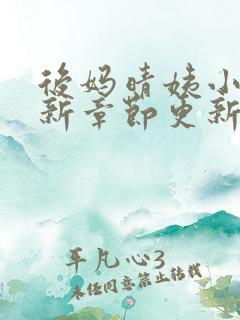 后妈晴姨小
新章节更新
平凡心3
未经同意禁止转载